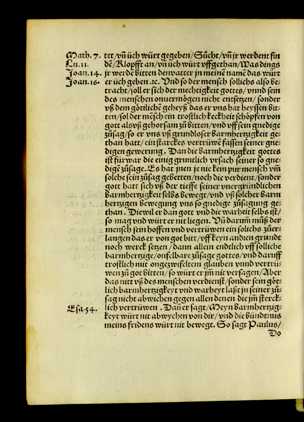 Math. 7. tet/vñ üch würt gegeben/Sůcht/vñ jr werdent fin
Lu. 11. dē/Klopfft an/vñ üch würt vffgethan/Was dengs
Joan. 14. jr werdē bitten den vatter jn meinē namē das würt
Joan. 16. er üch geben ꝛc. Vnd so der mensch sollichs also be
tracht/soll er sich der mechtigkeit gottes/vnnd sein
des menschen onuermögen nicht entsetzen/sonder
vß dem göttliche geheyß das er vns hat heyssen bit
ten/sol der mēsch ein trostlich keckheit schöpfen von
gott alweg gehorsam zů bitten/vnd vff sein gnedige
zůsag/so er vns vß grundloser barmhertzigkeit ge
than hatt/ein starckes vertrüwē fassen seiner gne
digen gewerung. Dan die barmhertzigkeit gottes
ist für war die einig grüntlich vrsach seiner so gne
dige zůsage. Es hat jnen je nie kein pur mensch vm̄
solche sein zůsag gebetten/noch die verdient/sonder
gott hatt sich vß der tieffe seiner vnergründlichen
barmhertzigkeit selbs bewegt/vnd vß solcher barm
hertzigen bewegung vns so gnedige zůsagung ge-
than. Diewil er dan gott vnd die warheit selbs ist/
so mag vnd würt er nit liegen. Vñ darum̄ můß der
mensch sein hoffen vnd vertrüwen ein solichs zů er-
langen das er von got bitt/vff keyn andren grundt
noch werck setzen/dann allein entlich vff solliche
barmhertzige/onfelbare zůsage gottes/vnd daruff
trostlich mit ongezwyfeltem glauben vnnd vertrü-
wen zů got bitten/so würt er jm nit versagen/Aber
das nitt vß des menschen verdienst/sonder sein göt-
lich barmhertzigkeyt vnd warheyt laßt jn seiner zů-
sag nicht abwichen gegen allen denen die jm sterck-
Esa. 54. lich vertrüwen. Dan er sagt/Meyn barmhertzig-
keyt würt nit abwychen von dir/vnd die büntnis
meins fridens würt nit bewegt. So sagt Paulus/
Do